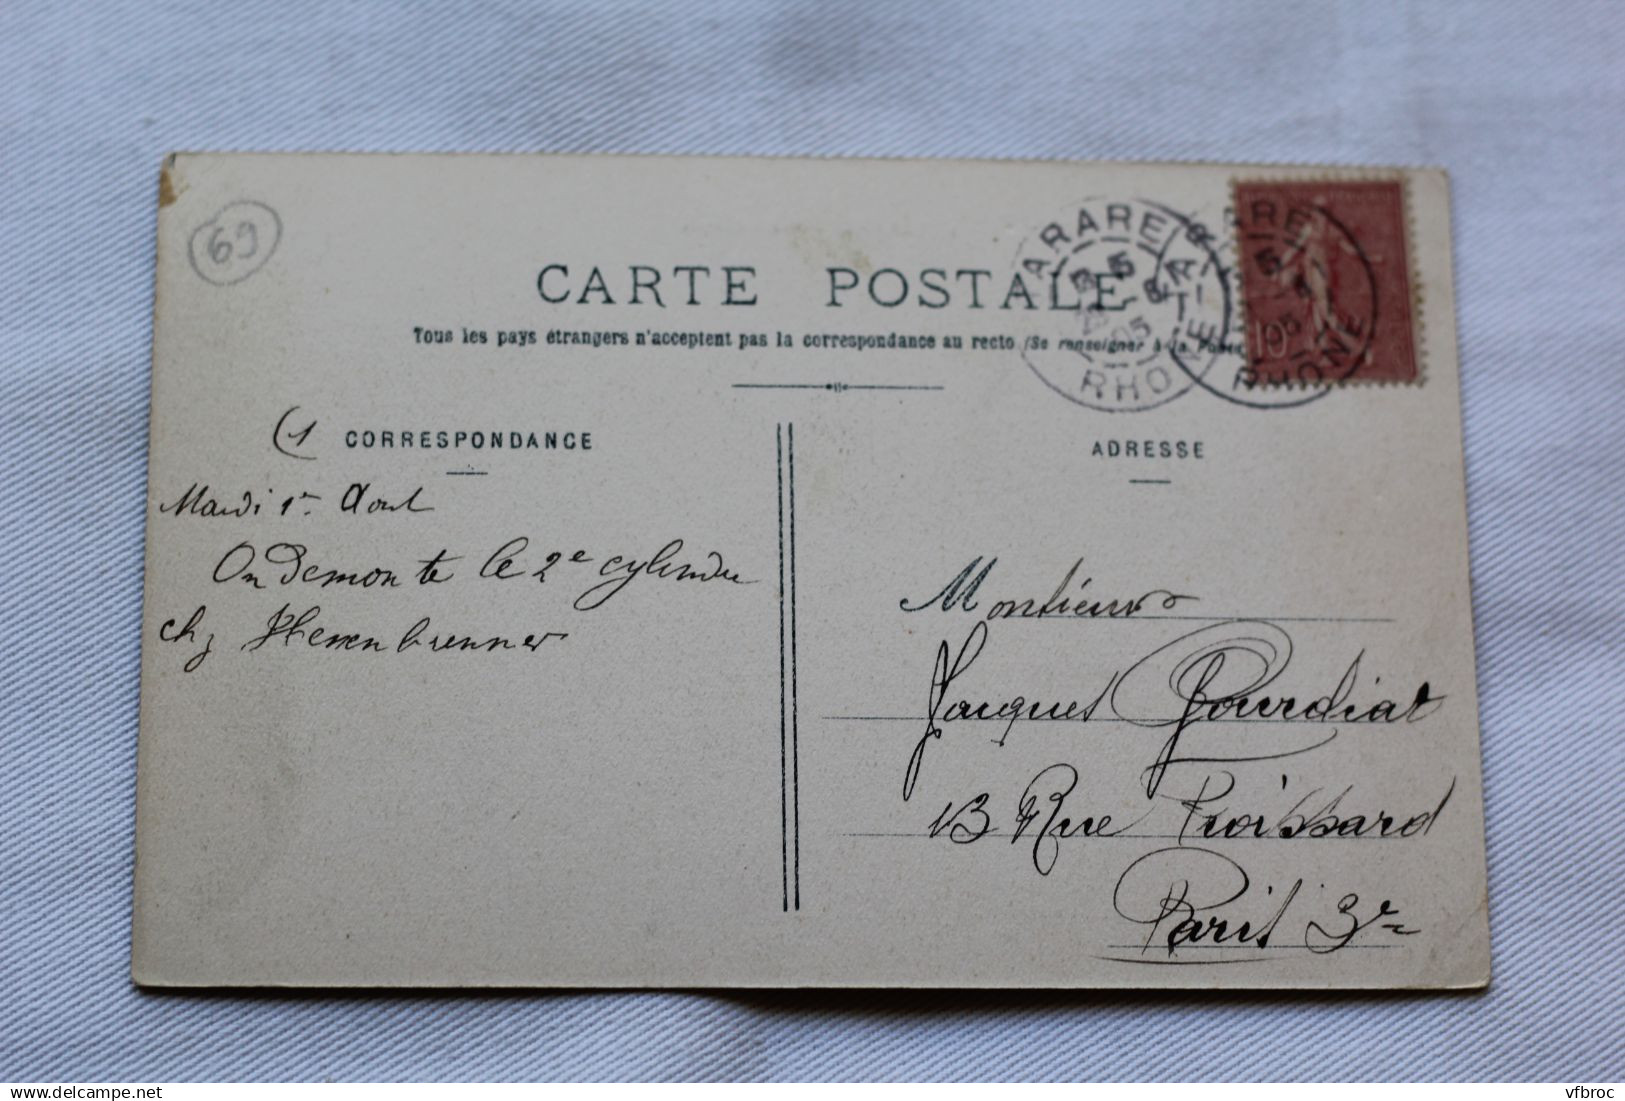 69
CARTE POSTALE
Tous les pays étrangers n'acceptent pas la correspondance au recto (Se renseigner à la Poste
TARARE
5
05
RHONE
TARARE
5
05
RHONE
10
(1 CORRESPONDANCE
ADRESSE
Mardi 1er Aout
On demonte le 2e cylindre
chez Hexenbrenner
Monsieur
Jacques Gourdiat
13 Rue Froissard
Paris 3e
www.delcampe.net
vfbroc